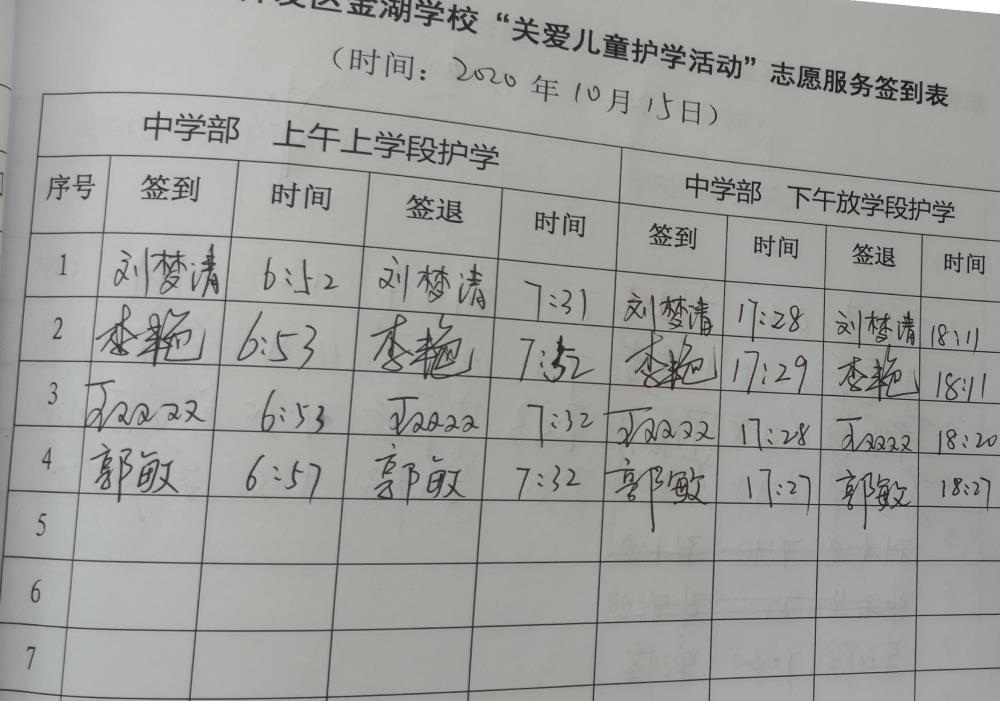 开发区金湖学校“关爱儿童护学活动”志愿服务签到表
(时间：2020年10月15日)
中学部 上午上学段护学 中学部 下午放学段护学
序号 签到 时间 签退 时间 签到 时间 签退 时间
1 刘梦清 6:52 刘梦清 7:31 刘梦清 17:28 刘梦清 18:11
2 李艳 6:53 李艳 7:32 李艳 17:29 李艳 18:11
3 6:53 7:32 17:28 18:20
4 郭敏 6:57 郭敏 7:32 郭敏 17:27 郭敏 18:27
5
6
7